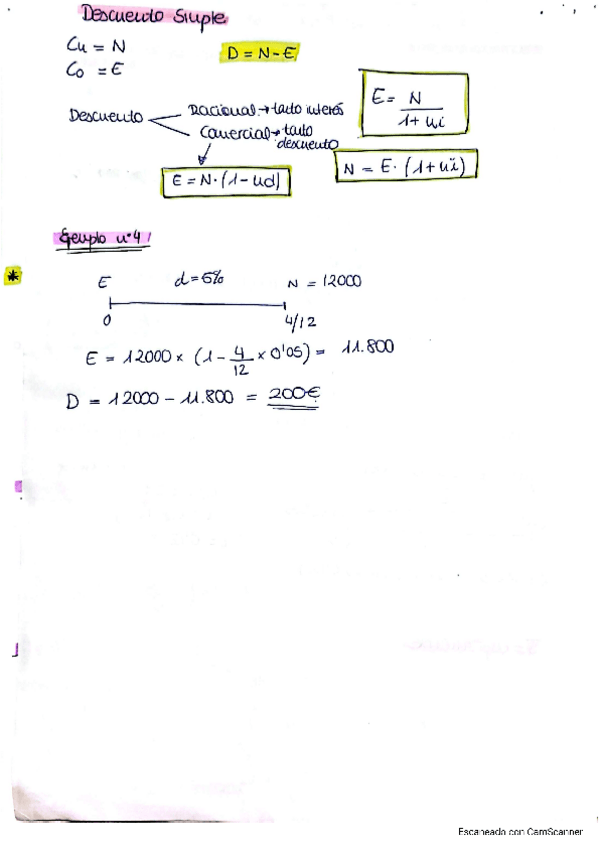 Descuento Simple
Cn = N
D = N - E
Co = E
E = N / 1 + ni
Descuento
Racional → tanto interés
Comercial → tanto descuento
N = E · (1 + ni)
E = N · (1 - nd)
Ejemplo nº 4
*
E d = 5% N = 12000
0 4/12
E = 12000 × (1 - 4/12 × 0'05) = 11.800
D = 12000 - 11.800 = 200€
Escaneado con CamScanner